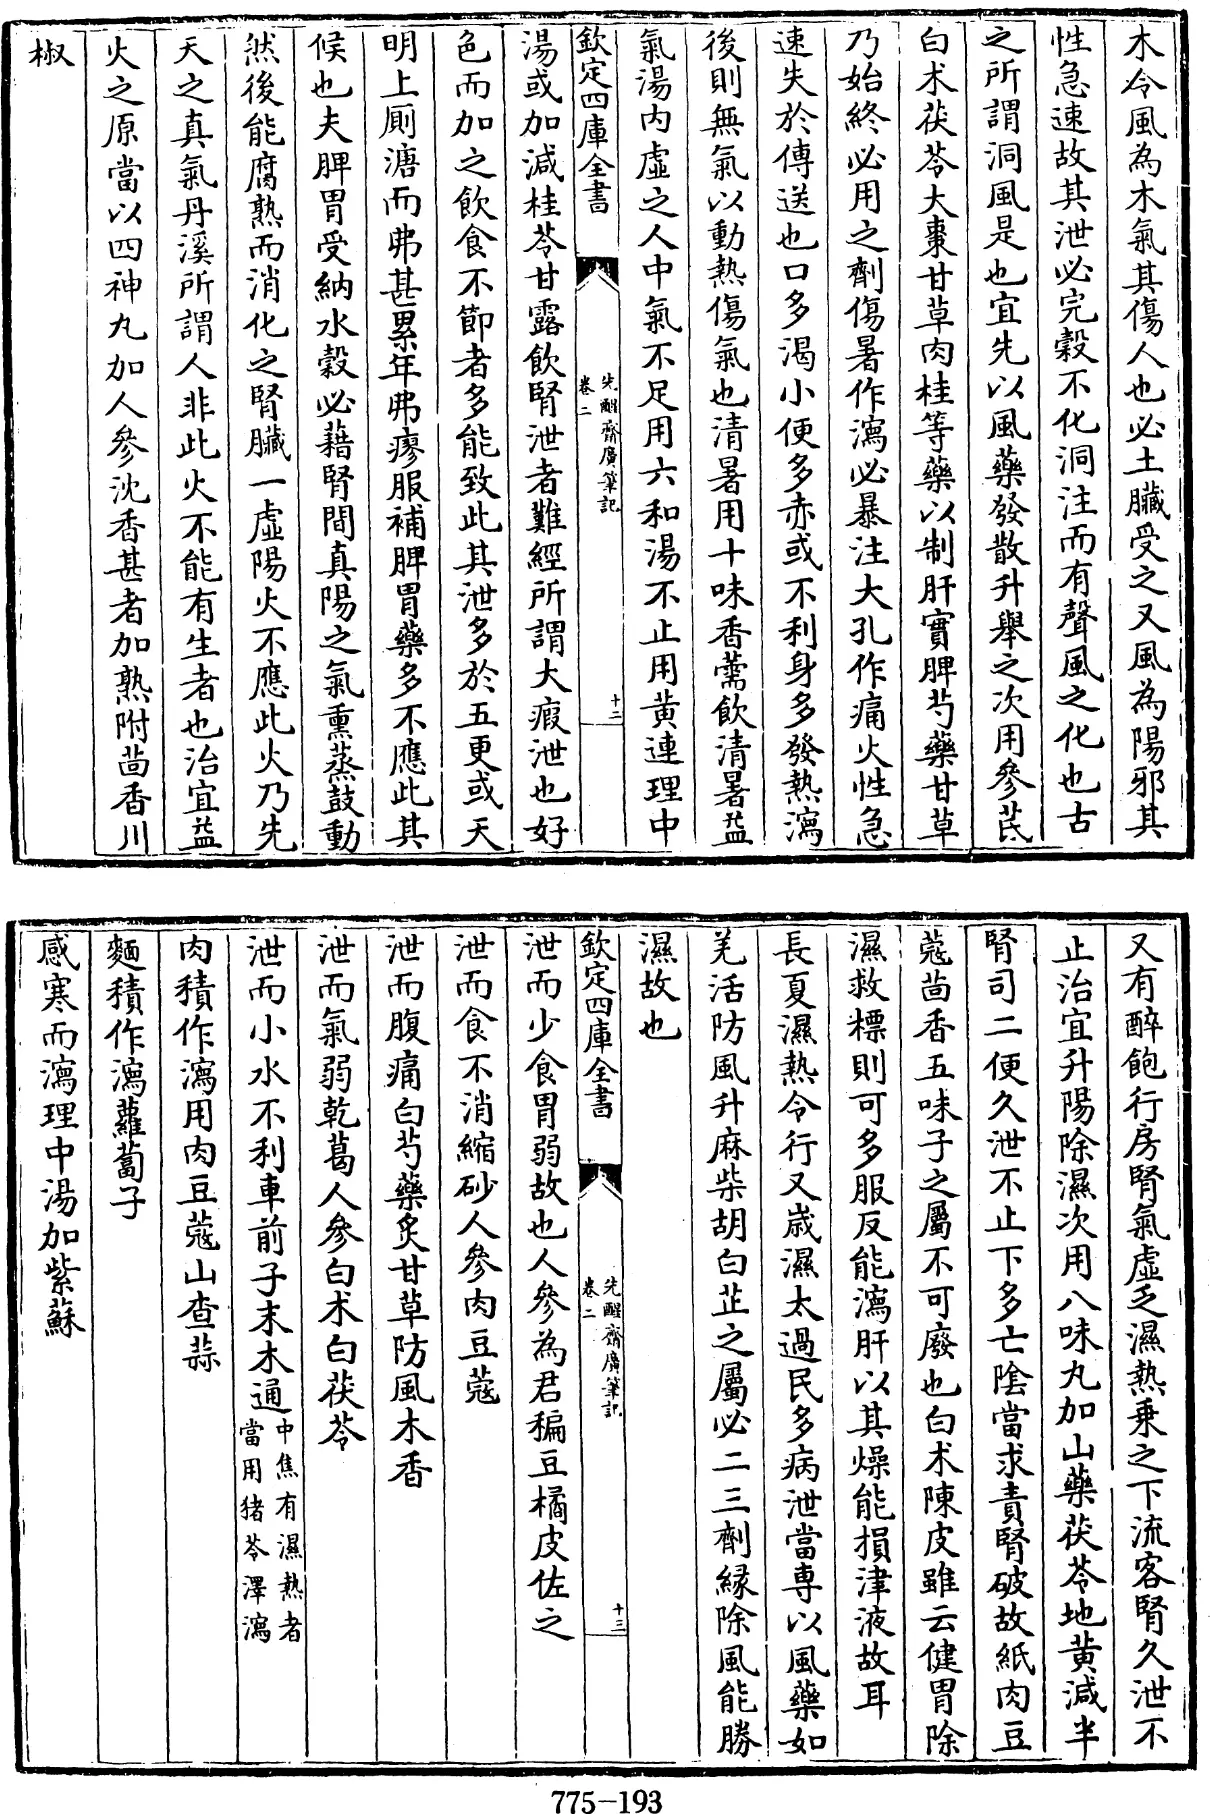 木令風為木氣其傷人也必土臟受之又風為陽邪其
性急速故其泄必完穀不化洞注而有聲風之化也古
之所謂洞風是也宜先以風藥發散升舉之次用參茋
白术茯苓大棗甘草肉桂等藥以制肝實脾芍藥甘草
乃始終必用之劑傷暑作瀉必暴注大孔作痛火性急
速失於傳送也口多渴小便多赤或不利身多發熱瀉
後則無氣以動熱傷氣也清暑用十味香薷飲清暑益
氣湯内虛之人中氣不足用六和湯不止用黄連理中
欽定四庫全書
先醒齋廣筆記
卷二
十二
湯或加減桂苓甘露飲腎泄者難經所謂大瘕泄也好
色而加之飲食不節者多能致此其泄多於五更或天
明上厠溏而弗甚累年弗瘳服補脾胃藥多不應此其
候也夫脾胃受納水穀必藉腎間真陽之氣熏蒸鼓動
然後能腐熟而消化之腎臟一虛陽火不應此火乃先
天之真氣丹溪所謂人非此火不能有生者也治宜益
火之原當以四神丸加人參沈香甚者加熟附茴香川
椒
又有醉飽行房腎氣虛乏濕熱乗之下流客腎久泄不
止治宜升陽除濕次用八味丸加山藥茯苓地黄減半
腎司二便久泄不止下多亡陰當求責腎破故紙肉豆
蔻茴香五味子之屬不可廢也白术陳皮雖云健胃除
濕救標則可多服反能瀉肝以其燥能損津液故耳
長夏濕熱令行又歲濕太過民多病泄當專以風藥如
羌活防風升麻柴胡白芷之屬必二三劑緣除風能勝
濕故也
欽定四庫全書
先醒齋廣筆記
卷二
十三
泄而少食胃弱故也人參為君稨豆橘皮佐之
泄而食不消縮砂人參肉豆蔻
泄而腹痛白芍藥炙甘草防風木香
泄而氣弱乾葛人參白术白茯苓
泄而小水不利車前子末木通中焦有濕熱者當用猪苓澤瀉
肉積作瀉用肉豆蔻山查蒜
麵積作瀉蘿蔔子
感寒而瀉理中湯加紫蘇
775-193